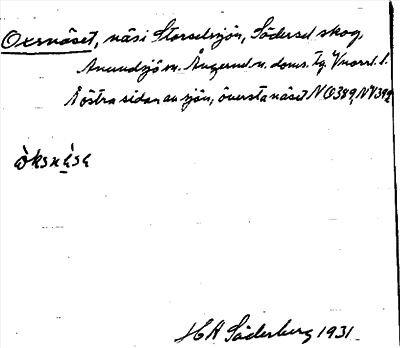 Oxsnäset, näs i Storselsjön, Södersel skog
Anundsjö sn. Ångerml. n. doms. tg. Vnorrl. l.
Å östra sidan av sjön, översta näset NO 389, NV 392
òksnὲsε
HA Söderberg 1931